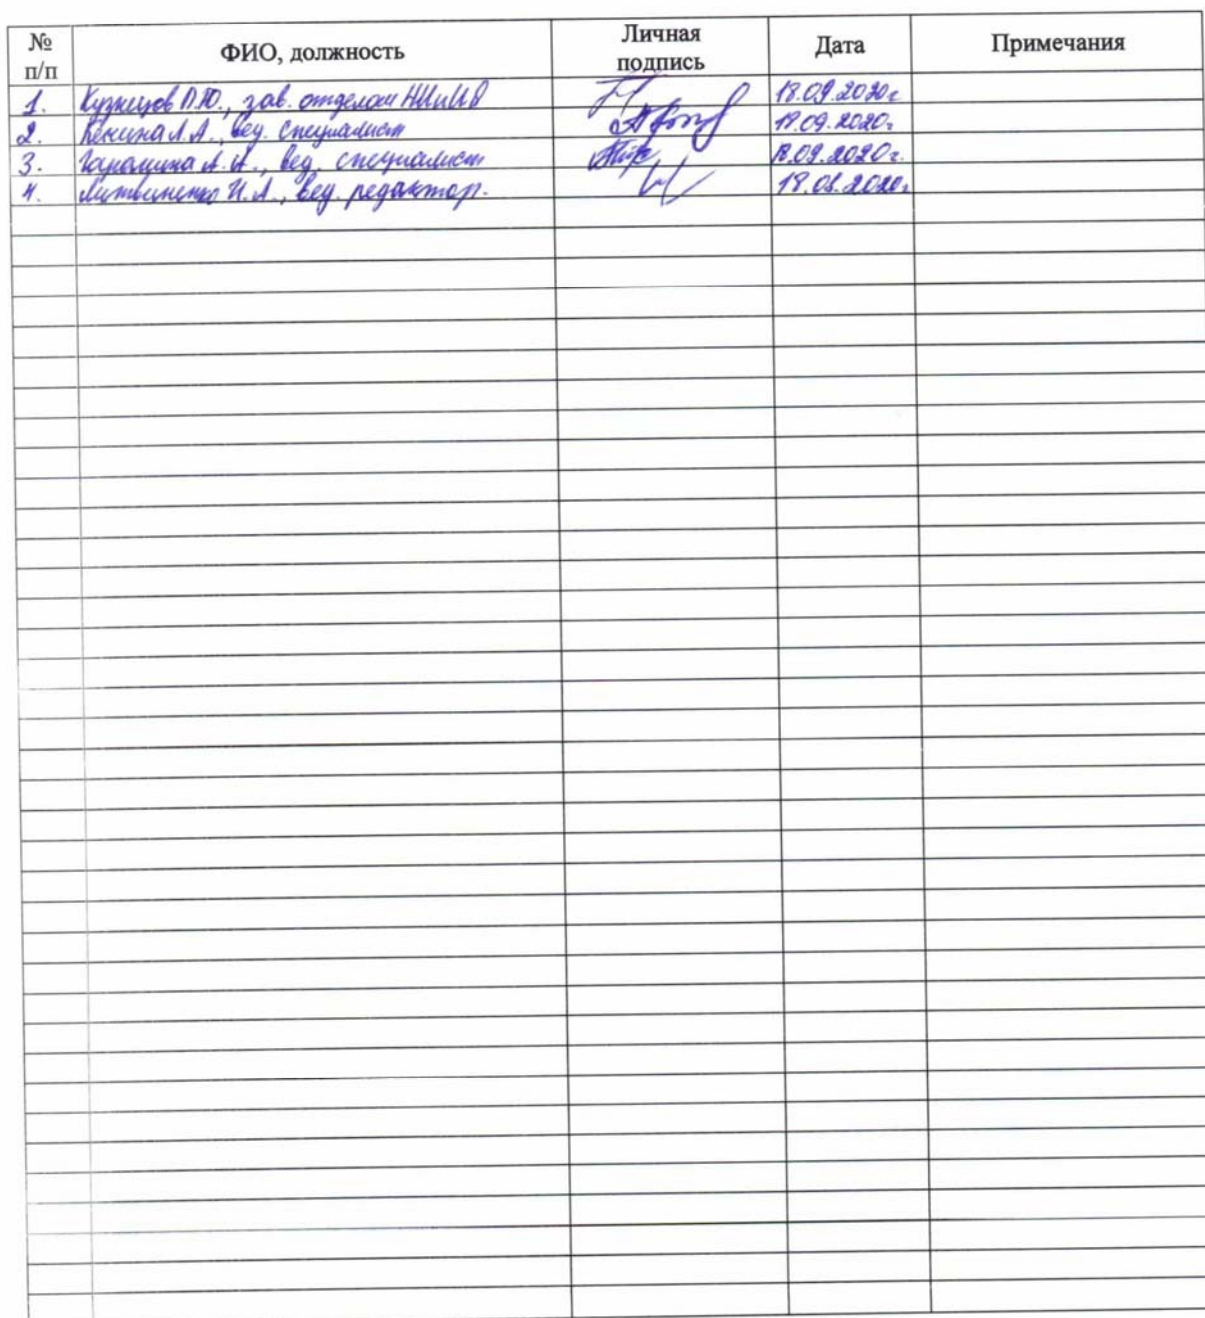 № п/п ФИО, должность Личная подпись Дата Примечания
1. Кузнецов П.Ю., зав. отделом НИиИВ 18.09.2020г
2. Л.А., вед. специалист 18.09.2020г
3. А.А., вед. специалист 18.09.2020г.
4. Литвиненко И.А., вед. редактор. 18.08.2020г